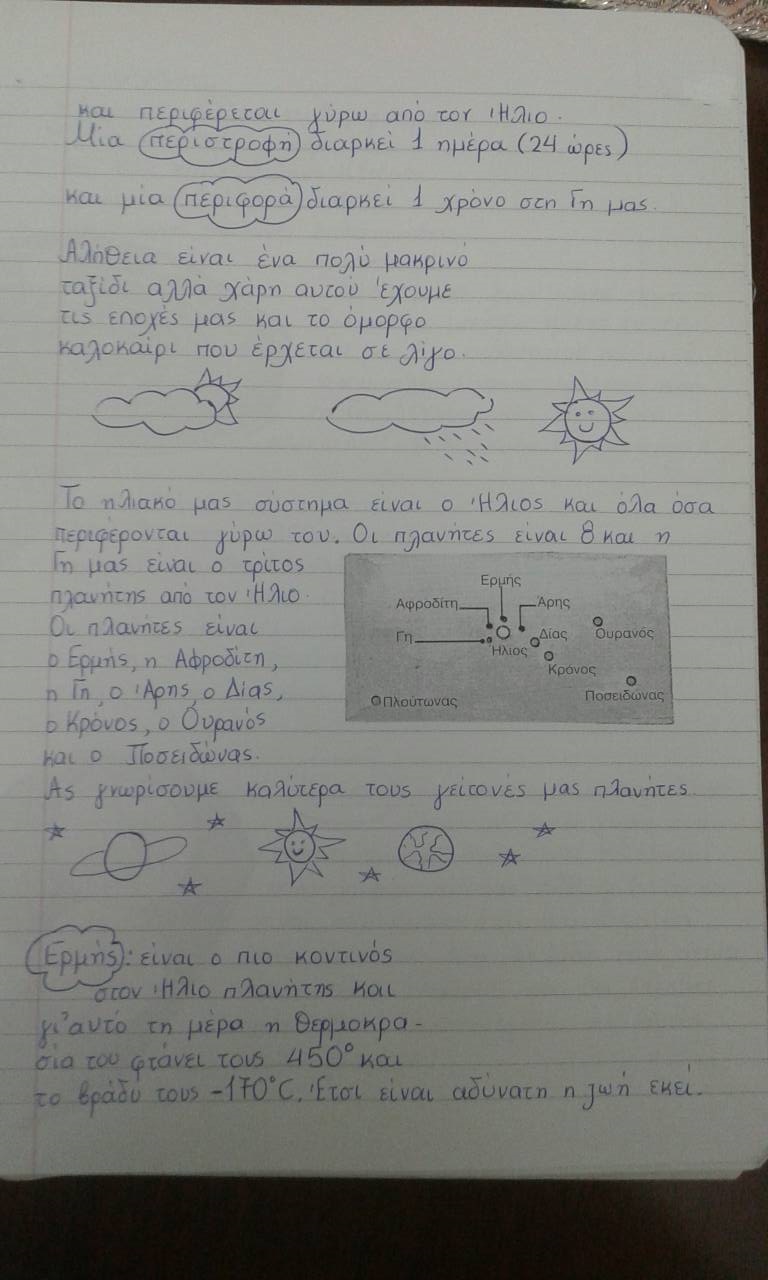 και περιφέρεται γύρω από τον Ήλιο.
Μία περιστροφή διαρκεί 1 ημέρα (24 ώρες)
και μία περιφορά διαρκεί 1 χρόνο στη Γη μας.
Αλήθεια είναι ένα πολύ μακρινό
ταξίδι αλλά χάρη αυτού έχουμε
τις εποχές μας και το όμορφο
καλοκαίρι που έρχεται σε λίγο.
Το ηλιακό μας σύστημα είναι ο Ήλιος και όλα όσα
περιφέρονται γύρω του. Οι πλανήτες είναι 8 και η
Γη μας είναι ο τρίτος
πλανήτης από τον Ήλιο.
Οι πλανήτες είναι
ο Ερμής, η Αφροδίτη,
η Γη, ο Άρης, ο Δίας,
ο Κρόνος, ο Ουρανός
και ο Ποσειδώνας.
Ερμής
Αφροδίτη
Άρης
Γη
Ήλιος
Δίας
Ουρανός
Κρόνος
Ποσειδώνας
Πλούτωνας
Ας γνωρίσουμε καλύτερα τους γείτονές μας πλανήτες.
Ερμής: είναι ο πιο κοντινός
στον Ήλιο πλανήτης και
γι'αυτό τη μέρα η θερμοκρα-
σία του φτάνει τους 450° και
το βράδυ τους -170°C. Έτσι είναι αδύνατη η ζωή εκεί.